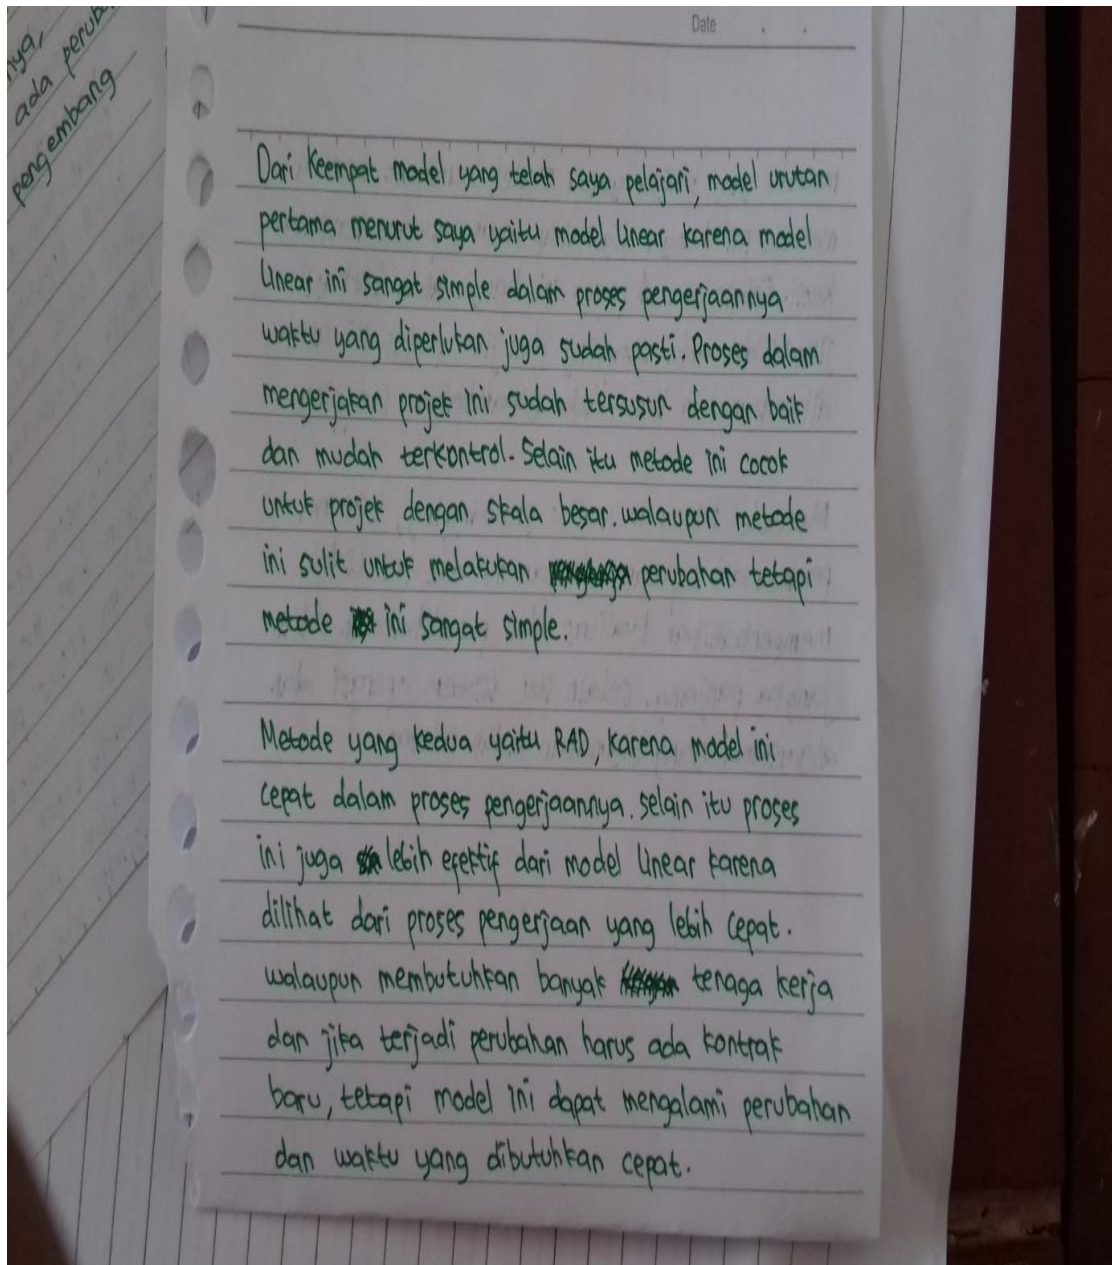 nya,
ada perub
pengembang
Date . .
Dari Keempat model yang telah saya pelajari, model urutan
pertama menurut saya yaitu model linear karena model
linear ini sangat simple dalam proses pengerjaannya
waktu yang diperlukan juga sudah pasti. Proses dalam
mengerjakan projek ini sudah tersusun dengan baik
dan mudah terkontrol. Selain itu metode ini cocok
untuk projek dengan skala besar. walaupun metode
ini sulit untuk melakukan perubahan tetapi
metode ini sangat simple.
Metode yang kedua yaitu RAD, karena model ini
cepat dalam proses pengerjaannya. selain itu proses
ini juga lebih efektif dari model linear karena
dilihat dari proses pengerjaan yang lebih cepat.
walaupun membutuhkan banyak tenaga kerja
dan jika terjadi perubahan harus ada kontrak
baru, tetapi model ini dapat mengalami perubahan
dan waktu yang dibutuhkan cepat.